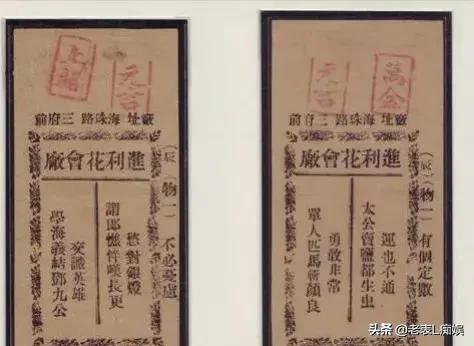 元吉
廠址 海珠路 三府前
進利花會廠
(辰) 物一 不必憂慮
愁對銀燈
謂郎憔悴嘆長更
交識英雄
學海義結鄧九公
萬金
元吉
廠址 海珠路 三府前
進利花會廠
(辰) 物一 有個定數
運也不通
太公賣鹽都生虫
勇敢非常
單人匹馬斬顏良
头条 @老表L痴娱